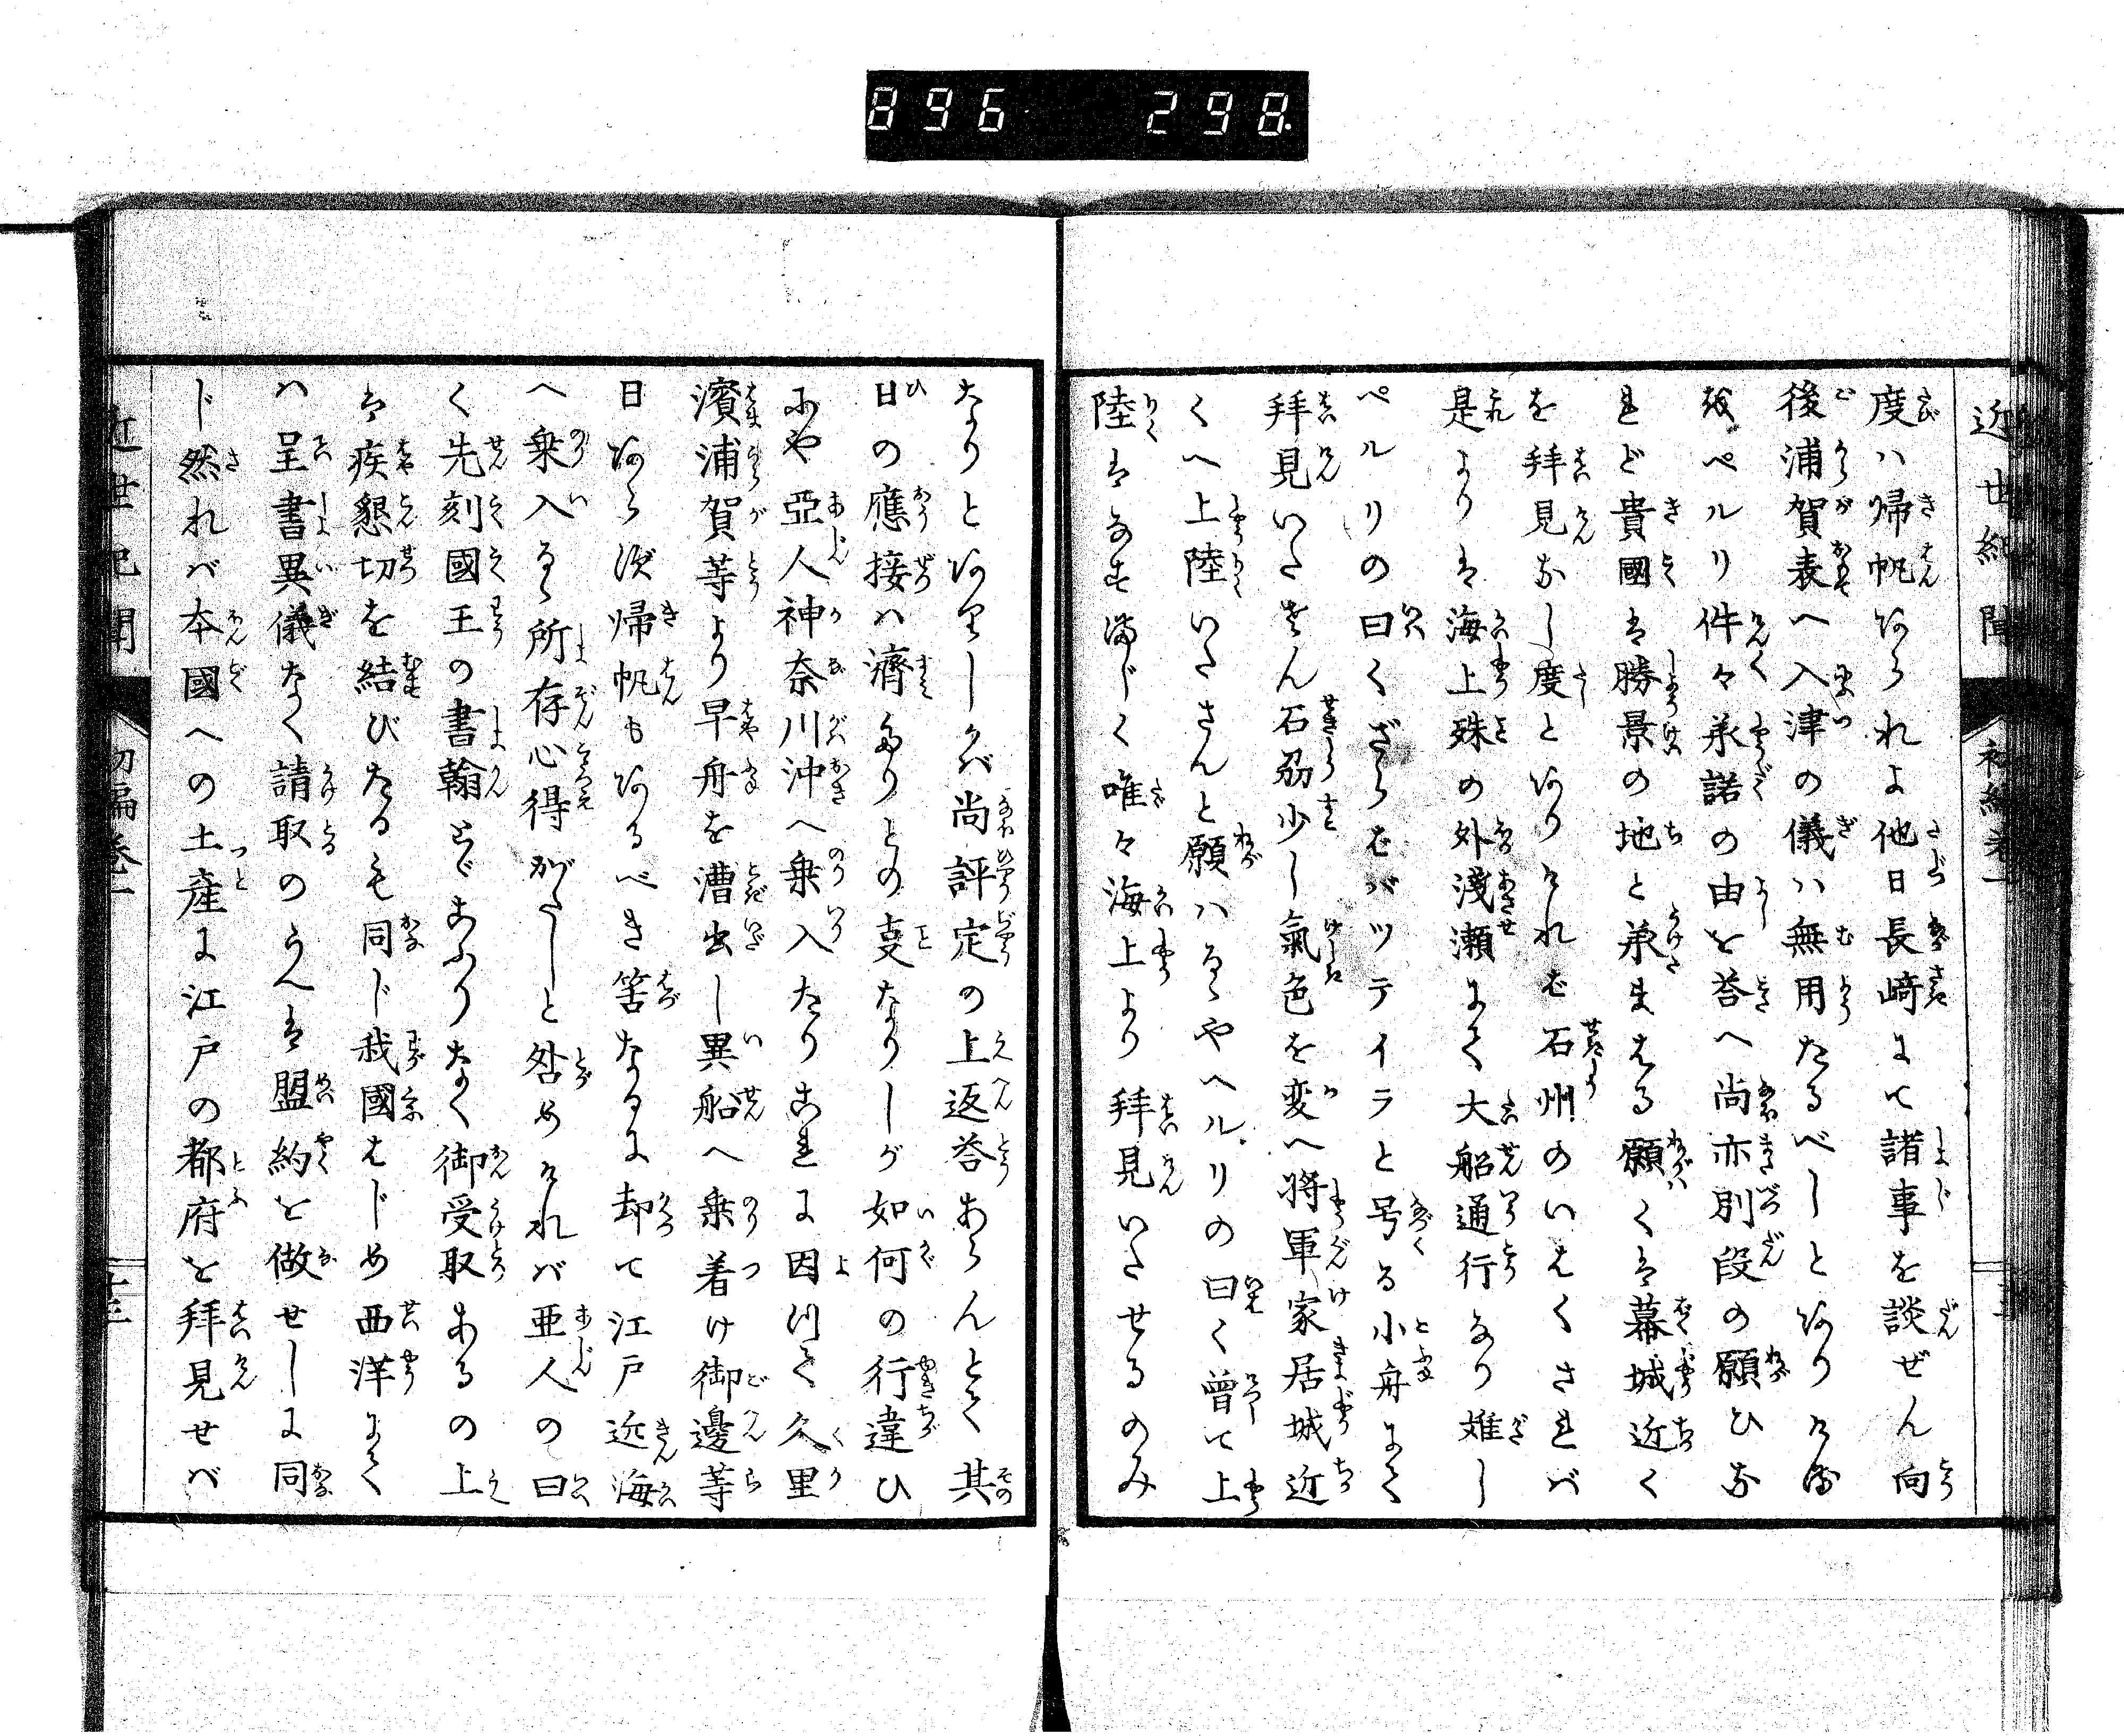 896 298
近世紀聞 初編卷一
度ハ帰帆あられよ他日長崎にて諸事を談ぜん向
後浦賀表へ入津の儀ハ無用たるべしとありける
故ペルリ件々承諾の由を荅へ尚亦別段の願ひな
れど貴國は勝景の地と承まはる願くは幕城近く
を拝見なし度とありけれど石州のいはくされバ
是よりは海上殊の外淺瀬にて大船通行なり難し
ペルリの曰くざらばバツテイラと号る小舟にて
拝見いたさん石州少し氣色を変へ将軍家居城近
くへ上陸いたさんと願ハるゝやペルリの曰く曾て上
陸はなさず只々海上より拝見いたせるのみ
なりとありしかバ尚評定の上返荅あらんとて其
日の應接ハ濟たりとの㕝なりしが如何の行違ひ
にや亞人神奈川沖へ乗入たりこれに因て久里
濱浦賀等より早舟を漕出し異船へ乗着け御邊等
日あらず帰帆もあるべき筈なるに却て江戸近海
へ乗入るゝ所存心得がたしと咎めけれバ亜人の曰
く先刻國王の書翰とゞこふりなく御受取あるの上
は疾懇切を結びたるも同じ我國はじめ西洋にて
ハ呈書異儀なく請取のうへは盟約を做せしに同
じ然れバ本國への土産に江戸の都府を拝見せバ
近世紀聞 初編卷一 十三